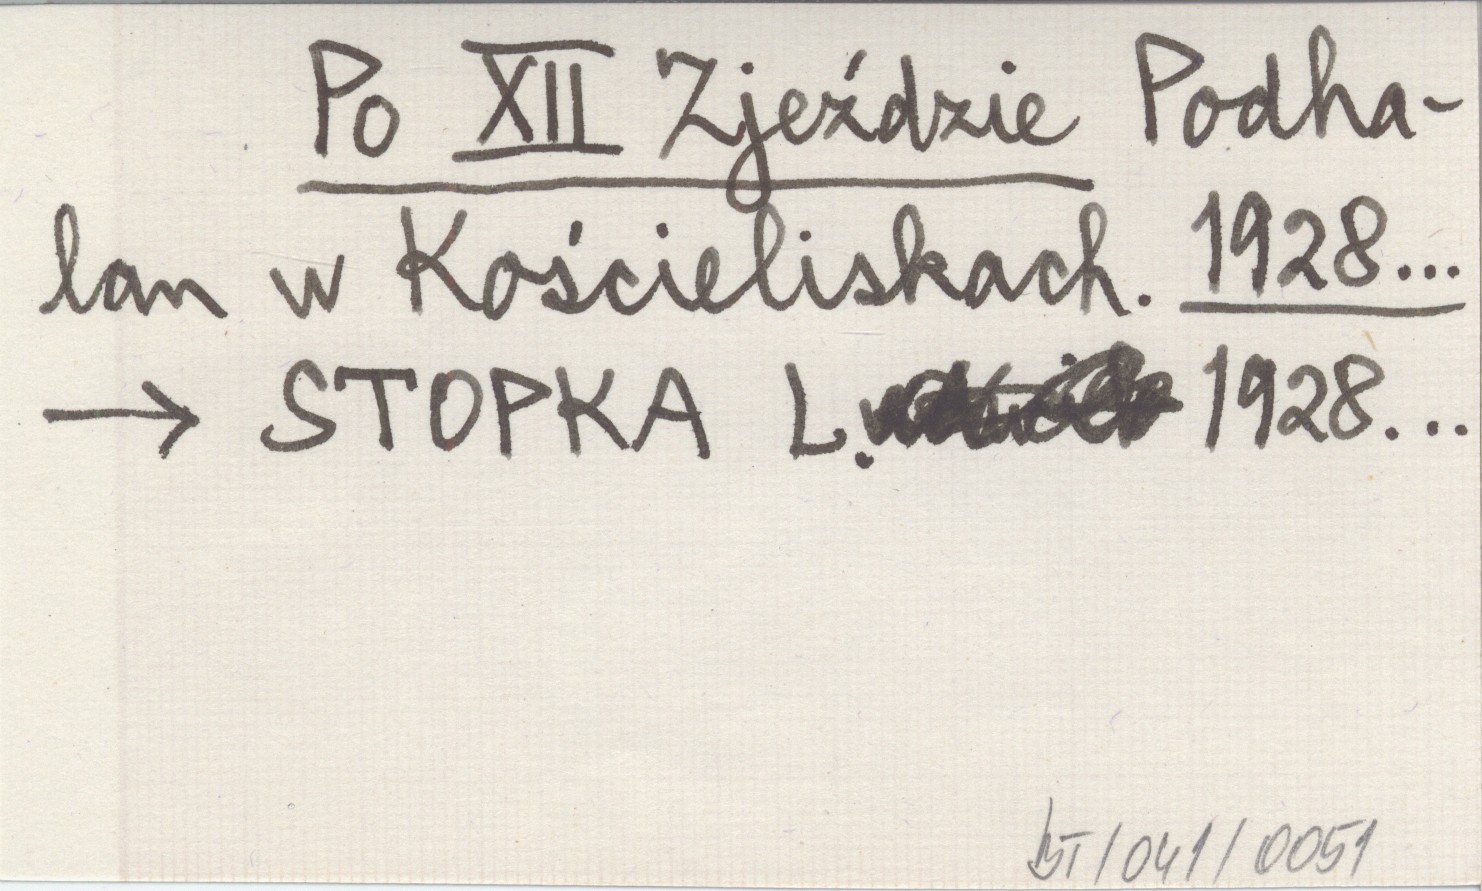 Po XII Zjeździe Podha-
lan w Kościeliskach. 1928...
→ STOPKA L. 1928...
BT/041/0051